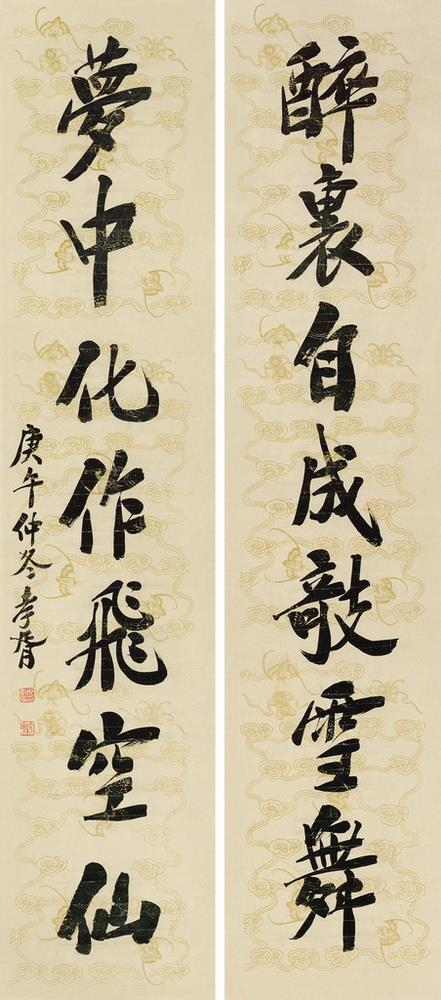 醉裏自成敧雪舞
夢中化作飛空仙
庚午仲冬孝胥